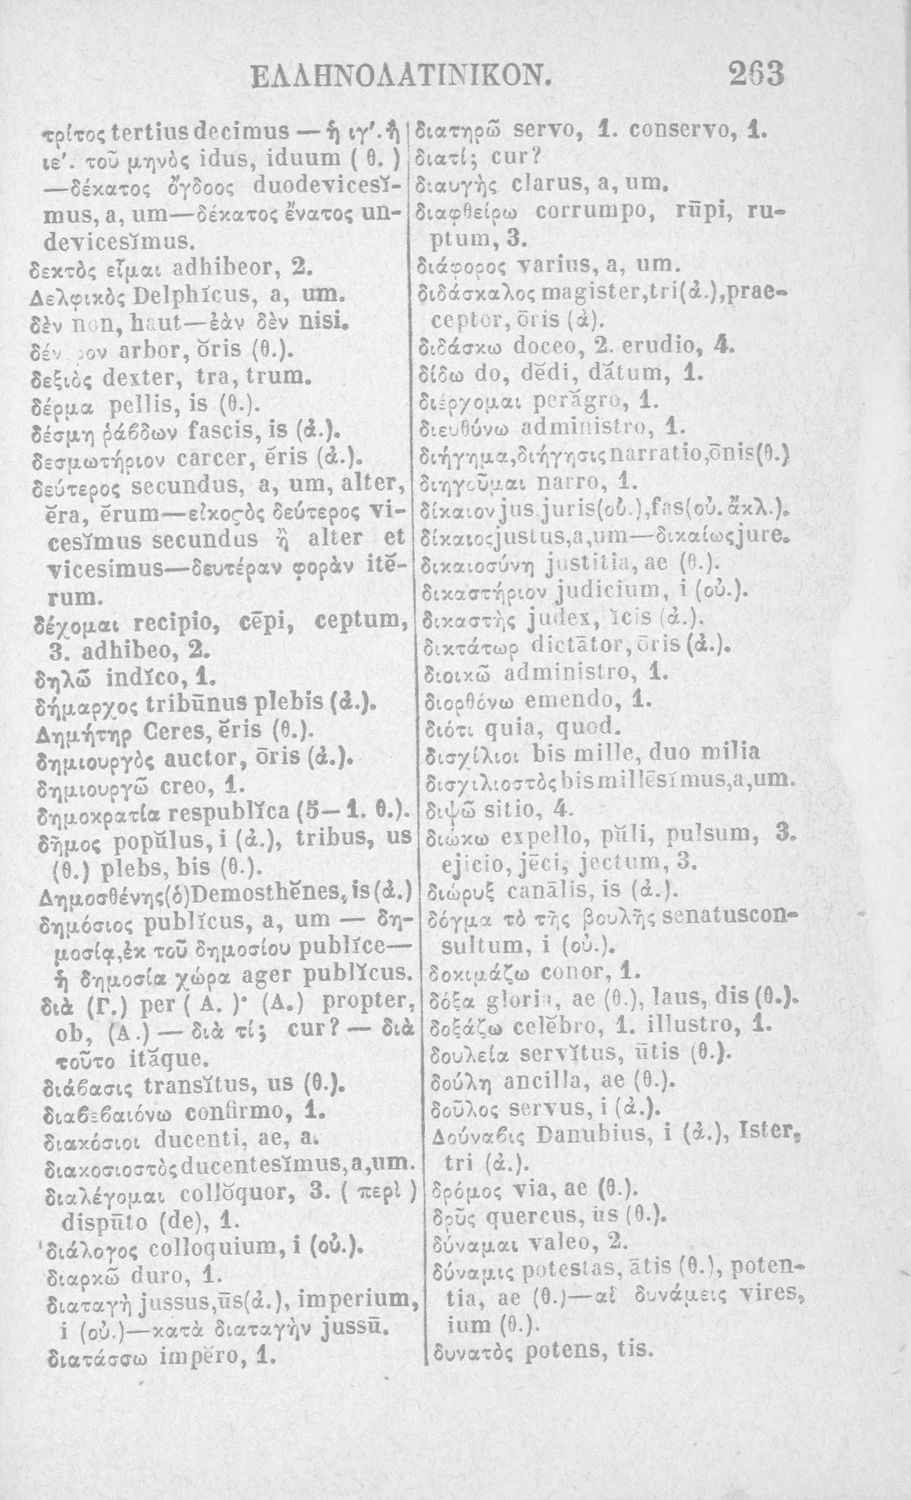 ΕΛΛΗΝΟΛΑΤΙΝΙΚΟΝ. 263
τρίτος tertius decimus — ἡ ιγ΄. ἢ
ιε΄. τοῦ μηνὸς idus, iduum (θ.)
—δέκατος ὄγδοος duodevicesĭ-
mus, a, um—δέκατος ἔνατος un-
devicesĭmus.
δεκτὸς εἶμαι adhibeor, 2.
Δελφικὸς Delphĭcus, a, um.
δὲν non, haut—ἐὰν δὲν nisi.
δέν ον arbor, ŏris (θ.).
δεξιὸς dexter, tra, trum.
δέρμα pellis, is (θ.).
δέσμη ῥάβδων fascis, is (ἀ.).
δεσμωτήριον carcer, ĕris (ἀ.).
δεύτερος secundus, a, um, alter,
ĕra, ĕrum—εἰκοστὸς δεύτερος vi-
cesĭmus secundus ἢ alter et
vicesimus—δευτέραν φορὰν itĕ-
rum.
δέχομαι recipio, cēpi, ceptum,
3. adhibeo, 2.
δηλῶ indĭco, 1.
δήμαρχος tribūnus plebis (ἀ.).
Δημήτηρ Ceres, ĕris (θ.).
δημιουργὸς auctor, ōris (ἀ.).
δημιουργῶ creo, 1.
δημοκρατία respublĭca (5—1. θ.).
δῆμος popŭlus, i (ἀ.), tribus, us
(θ.) plebs, bis (θ.).
Δημοσθένης(ὁ)Demosthĕnes, is(ἀ.)
δημόσιος publĭcus, a, um — δη-
μοσίᾳ, ἐκ τοῦ δημοσίου publĭce—
ἡ δημοσία χώρα ager publĭcus.
διὰ (Γ.) per (A.)· (Δ.) propter,
ob, (A.) — διὰ τί; cur? — διὰ
τοῦτο ităque.
διάβασις transĭtus, us (θ.).
διαβεβαιόνω confirmo, 1.
διακόσιοι ducenti, ae, a.
διακοσιοστὸς ducentesĭmus, a, um.
διαλέγομαι collŏquor, 3. (περὶ)
dispŭto (de), 1.
διάλογος colloquium, i (οὐ.).
διαρκῶ duro, 1.
διαταγὴ jussus, ūs(ἀ.), imperium,
i (οὐ.)—κατὰ διαταγὴν jussū.
διατάσσω impĕro, 1.
διατηρῶ servo, 1. conservo, 1.
διατί; cur?
διαυγὴς clarus, a, um.
διαφθείρω corrumpo, rūpi, ru-
ptum, 3.
διάφορος varius, a, um.
διδάσκαλος magister, tri(ἀ.), prae-
ceptor, ōris (ἀ).
διδάσκω doceo, 2. erudio, 4.
δίδω do, dĕdi, dătum, 1.
διέρχομαι perăgro, 1.
διευθύνω administro, 1.
διήγημα, διήγησις narratio, ōnis(θ.)
διηγοῦμαι narro, 1.
δίκαιον jus juris(οὐ.), fas(οὐ. ἄκλ.).
δίκαιος justus, a, um—δικαίως jure.
δικαιοσύνη justitia, ae (θ.).
δικαστήριον judicium, i (οὐ.).
δικαστὴς judex, ĭcis (ἀ.).
δικτάτωρ dictātor, ōris (ἀ.).
διοικῶ administro, 1.
διορθόνω emendo, 1.
διότι quia, quod.
δισχίλιοι bis mille, duo milia
δισχιλιοστὸς bis millēsĭmus, a, um.
διψῶ sitio, 4.
διώκω expello, pŭli, pulsum, 3.
ejicio, jēci, jectum, 3.
διώρυξ canālis, is (ἀ.).
δόγμα τὸ τῆς βουλῆς senatuscon-
sultum, i (οὐ.).
δοκιμάζω conor, 1.
δόξα gloria, ae (θ.), laus, dis (θ.).
δοξάζω celĕbro, 1. illustro, 1.
δουλεία servĭtus, ūtis (θ.).
δούλη ancilla, ae (θ.).
δοῦλος servus, i (ἀ.).
Δούναβις Danubius, i (ἀ.), Ister,
tri (ἀ.).
δρόμος via, ae (θ.).
δρῦς quercus, ūs (θ.).
δύναμαι valeo, 2.
δύναμις potestas, ātis (θ.), poten-
tia, ae (θ.)—αἱ δυνάμεις vires,
ium (θ.).
δυνατὸς potens, tis.